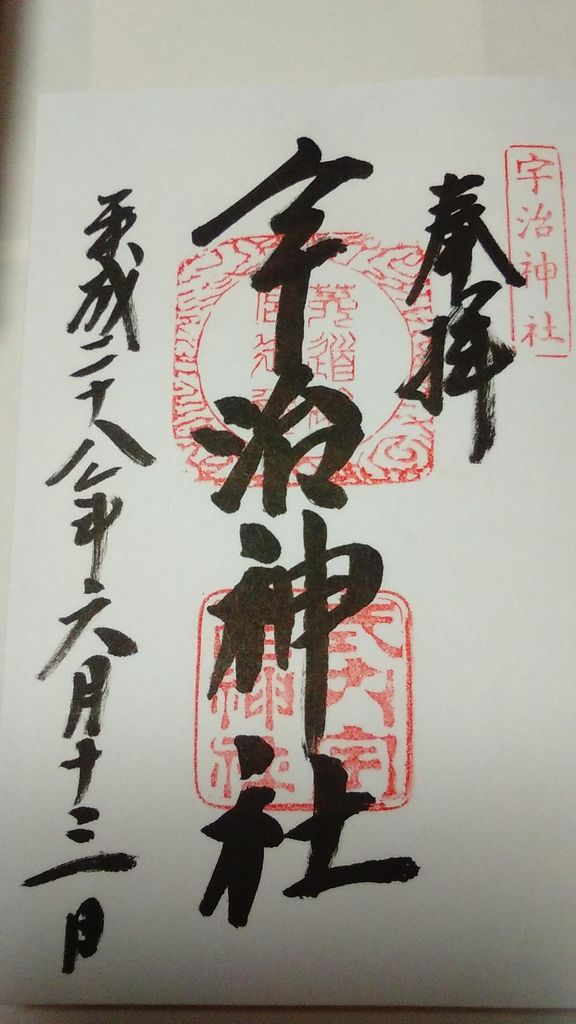 宇治神社
奉拝
宇治神社
平成二十八年六月十三日